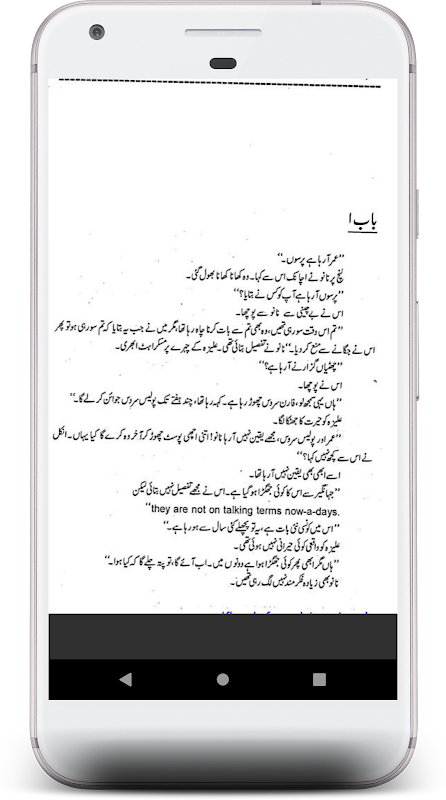 باب ۱
’’عمر آ رہا ہے پرسوں۔‘‘
لنچ پر نانو نے اچانک اس سے کہا۔ وہ کھانا کھانا بھول گئی۔
’’پرسوں آ رہا ہے آپ کو کس نے بتایا؟‘‘
اس نے بے چینی سے نانو سے پوچھا۔
’’تم اس وقت سو رہی تھیں، وہ بھی تم سے بات کرنا چاہ رہا تھا، مگر میں نے جب یہ بتایا کہ تم سو رہی ہو تو پھر
اس نے جگانے سے منع کر دیا۔‘‘ نانو نے تفصیل بتائی تھی۔ علیزہ کے چہرے پر مسکراہٹ ابھری۔
’’چھٹیاں گزارنے آ رہا ہے؟‘‘
اس نے پوچھا۔
’’ہاں یہی سمجھ لو، فارن سروس چھوڑ رہا ہے۔ کہہ رہا تھا، چند ہفتے تک پولیس سروس جوائن کر لے گا۔‘‘
علیزہ کو حیرت کا جھٹکا لگا۔
’’عمر اور پولیس سروس، مجھے یقین نہیں آ رہا نانو! اتنی اچھی پوسٹ چھوڑ کر آخر وہ کرے گا کیا یہاں۔ انکل
نے اس سے کچھ نہیں کہا؟‘‘
اسے ابھی بھی یقین نہیں آ رہا تھا۔
’’جہانگیر سے اس کا کوئی جھگڑا ہو گیا ہے۔ اس نے مجھے تفصیل نہیں بتائی لیکن
they are not on talking terms now-a-days.‘‘
’’اس میں کونسی نئی بات ہے، یہ تو پچھلے کئی سال سے ہو رہا ہے۔‘‘
علیزہ کو واقعی کوئی حیرانی نہیں ہوئی تھی۔
’’ہاں مگر ابھی پھر کوئی جھگڑا ہوا ہے دونوں میں۔ اب آئے گا، تو پتہ چلے گا کہ کیا ہوا۔‘‘
نانو بھی زیادہ فکر مند نہیں لگ رہی تھیں۔